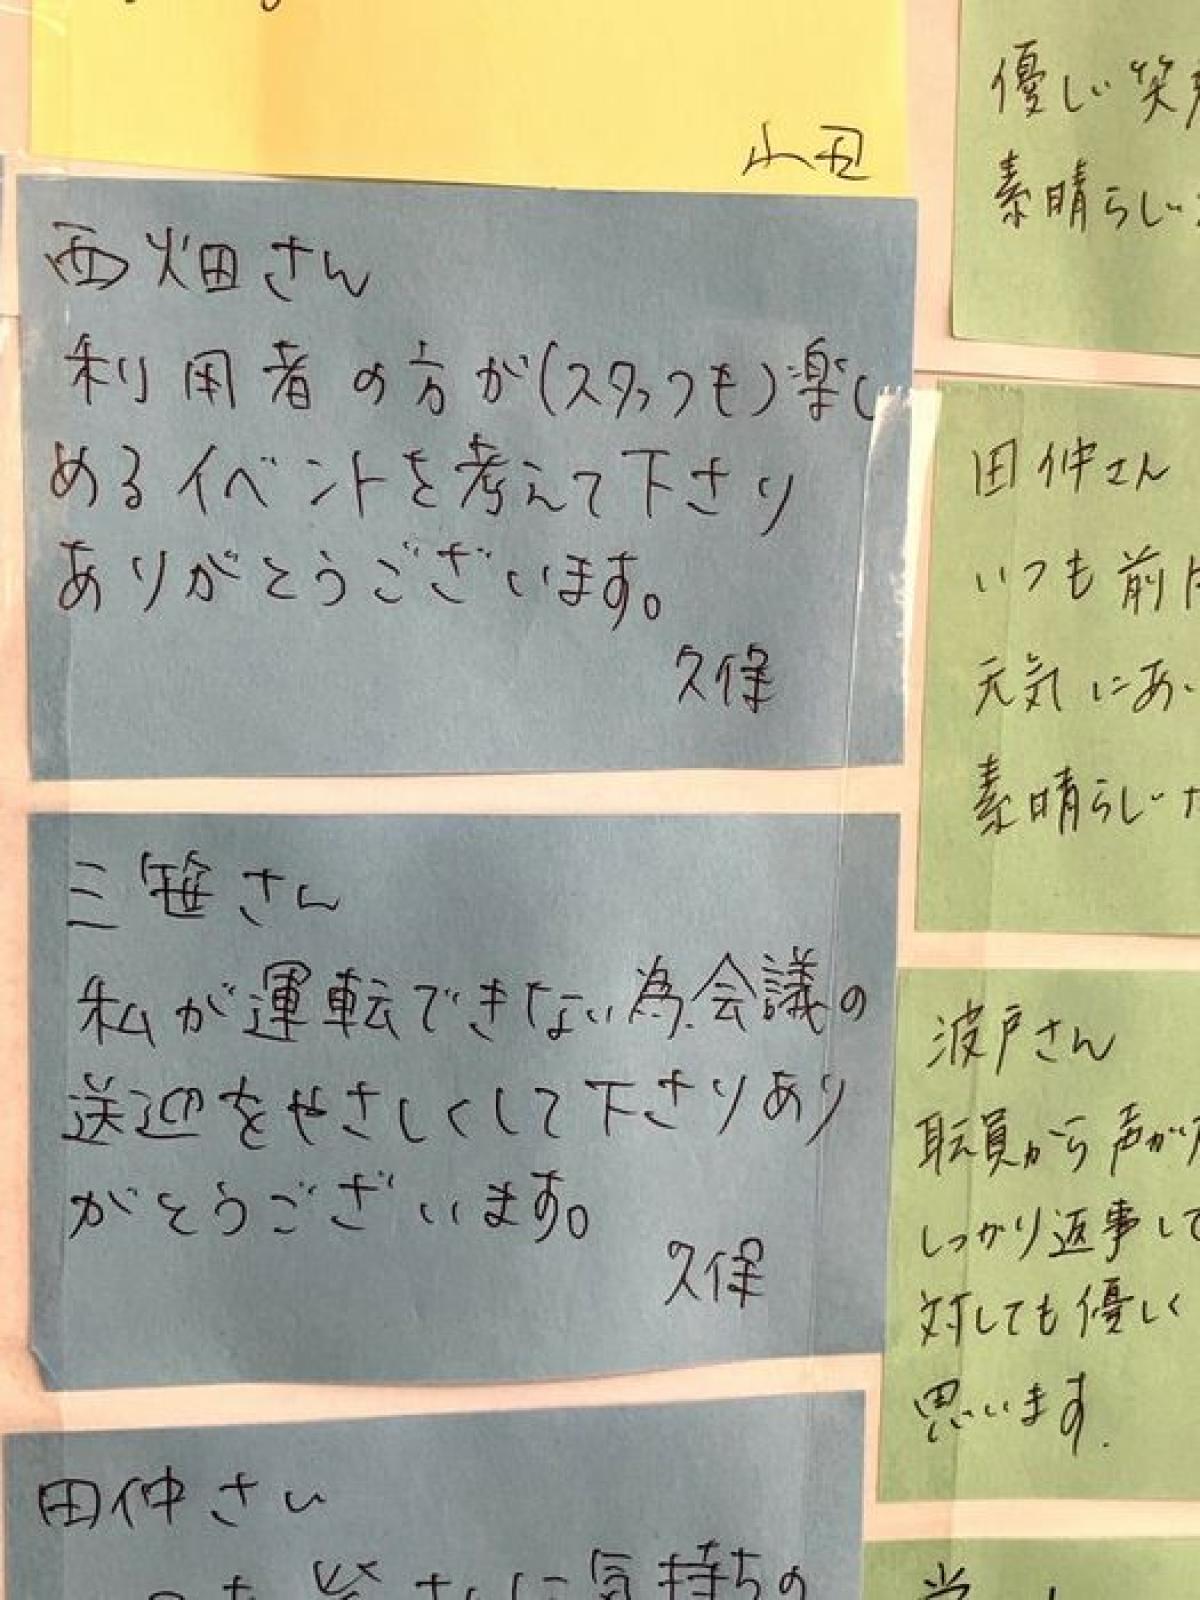 山丑
西畑さん
利用者の方が(スタッフも)楽し
めるイベントを考えて下さり
ありがとうございます。
久保
三笹さん
私が運転できない為、会議の
送迎をやさしくして下さりあり
がとうございます。
久保
田仲さん
皆さんに気持ちの
優しい笑
素晴らしい
田仲さん
いつも前
元気にあい
素晴らしい
波戸さん
職員から声が
しっかり返事して
対しても優しく
思います.